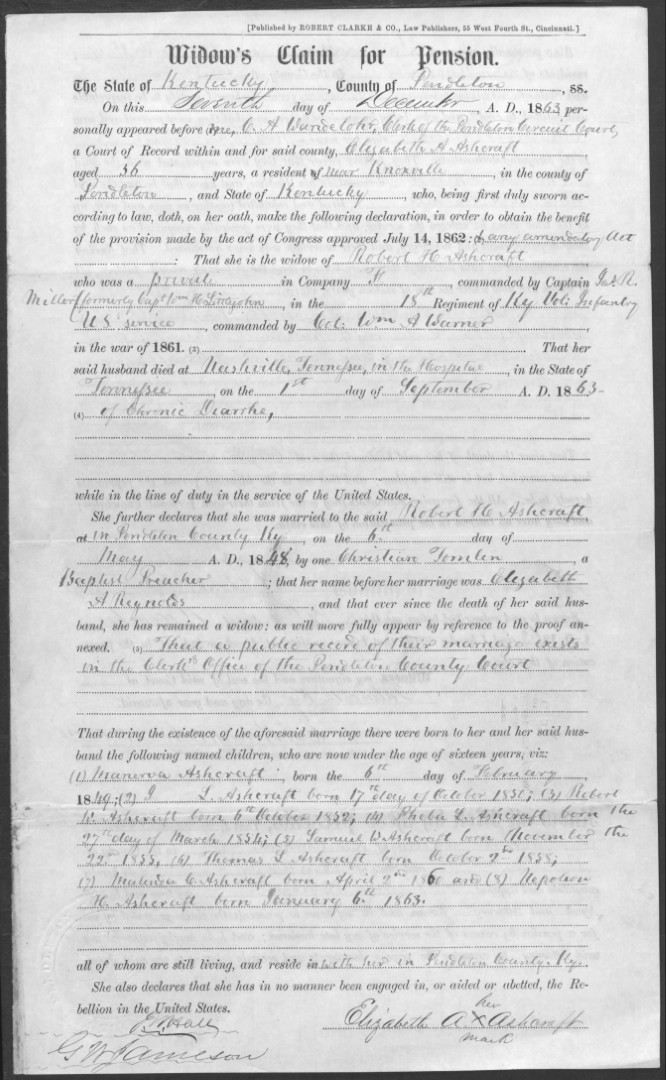 [Published by ROBERT CLARKE & CO., Law Publishers, 55 West Fourth St., Cincinnati.]
Widow's Claim for Pension.
The State of Kentucky, County of Pendleton, ss.
On this Seventh day of December A. D., 1863 per-
sonally appeared before me, C. A Wandelohr, Clerk of the Pendleton Circuit Court,
a Court of Record within and for said county, Elizabeth A Ashcraft
aged 36 years, a resident of near Knoxville, in the county of
Pendleton, and State of Kentucky, who, being first duly sworn ac-
cording to law, doth, on her oath, make the following declaration, in order to obtain the benefit
of the provision made by the act of Congress approved July 14, 1862: & any amendatory Act
: That she is the widow of Robert H Ashcraft
who was a private in Company F, commanded by Captain Jas. R.
Miller formerly Capt Wm H Littlejohn, in the 18th Regiment of Ky Vol: Infantry
US service, commanded by Col: Wm A Warner
in the war of 1861. (2) That her
said husband died at Nashville, Tennessee, in the Hospital, in the State of
Tennessee, on the 1st day of September A. D. 1863
(4) of Chronic Diarrhe,
while in the line of duty in the service of the United States.
She further declares that she was married to the said Robert H Ashcraft,
at in Pendleton County Ky, on the 6th day of
May A. D., 1848, by one Christian Tomlin, a
Baptist Preacher; that her name before her marriage was Elizabeth
A Reynolds, and that ever since the death of her said hus-
band, she has remained a widow; as will more fully appear by reference to the proof an-
nexed. (5) That a public record of their marriage exists
in the Clerk's Office of the Pendleton County Court
That during the existence of the aforesaid marriage there were born to her and her said hus-
band the following named children, who are now under the age of sixteen years, viz:
(1) Manerva Ashcraft, born the 6th day of February,
1849; (2) L. Ashcraft born 17th day of October 1850; (3) Robert
W. Ashcraft born 6th October 1852; (4) Pheba L Ashcraft born the
27th day of March 1854; (5) Samuel W Ashcraft born November the
22nd 1855, (6) Thomas L Ashcraft born October 2nd 1858;
(7) Ashcraft born April 2nd 1860 and (8) Napoleon
H. Ashcraft born January 6th 1863.
all of whom are still living, and reside in with her in Pendleton County, Ky.
She also declares that she has in no manner been engaged in, or aided or abetted, the Re-
bellion in the United States.
Hall
her
Elizabeth A X Ashcraft
mark
G W Jameson